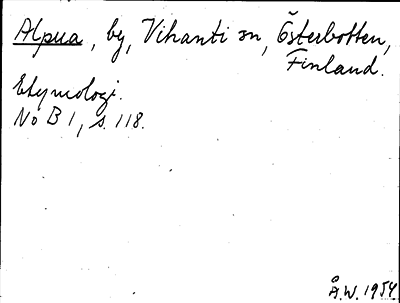 Alpua, by, Vihanti sn, Österbotten,
Finland.
Etymologi.
No B 1, s. 118.
Å.W. 1954